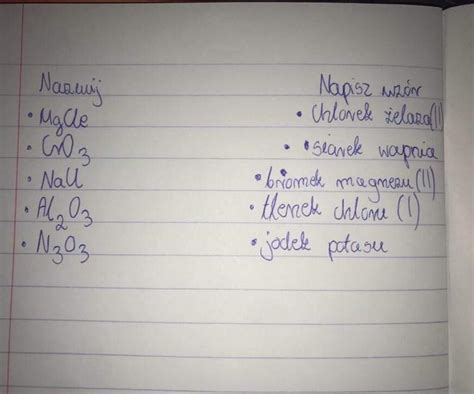 Nazwij
• MgCle
• CrO3
• NaCl
• Al2O3
• N3O3
Napisz wzór
• Chlorek żelaza(II)
• siarek wapnia
• bromek magnezu(II)
• tlenek chloru (I)
• jodek potasu